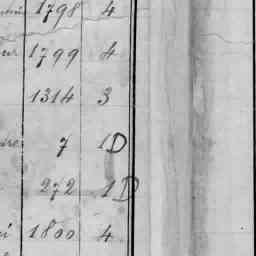 1798 4
1799 4
1314 3
7 1D
272 1D
1800 4